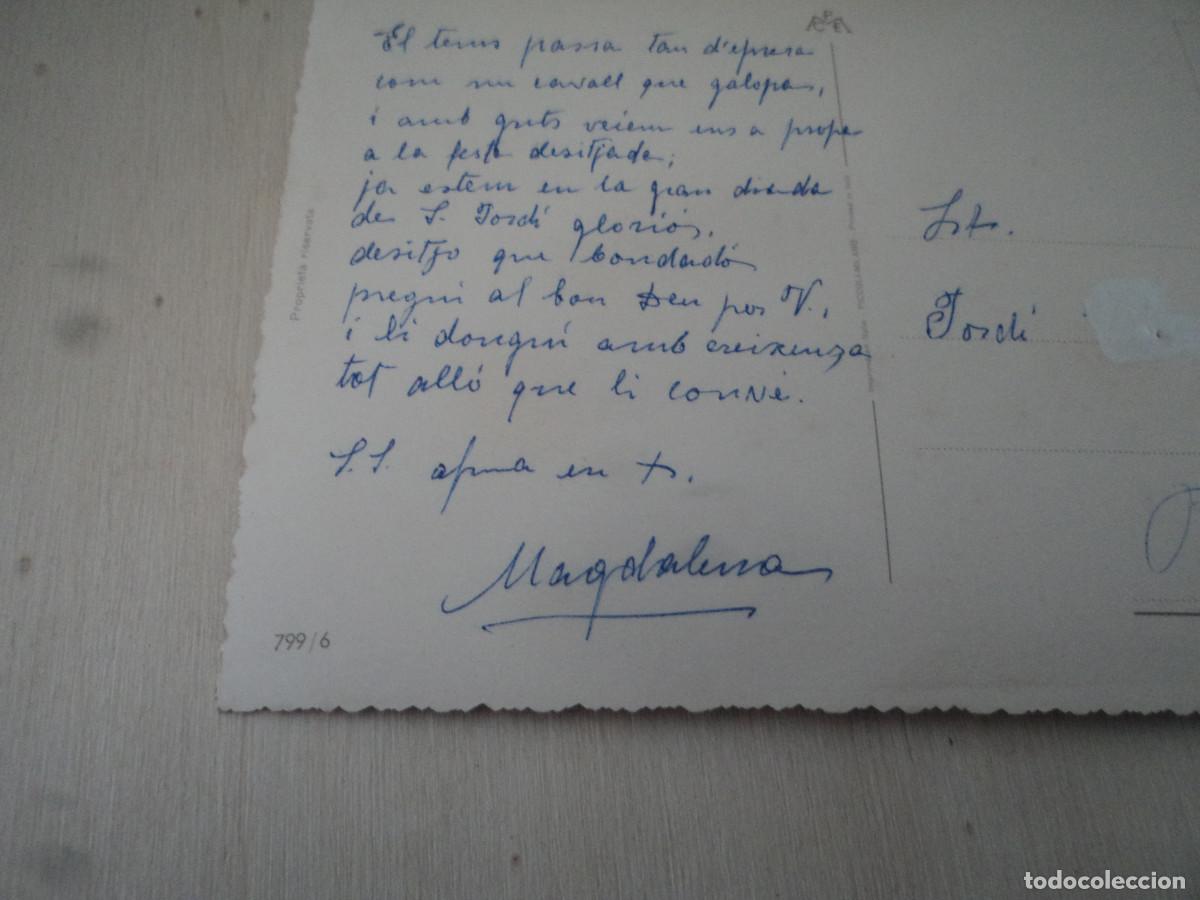 El tems passa tan d'epresa
com un cavall que galopa,
i amb guts veiem ens a prope
a la festa desitjada;
ja estem en la gran diada
de S. Jordi gloriós,
desitjo que bondadós
pregui al bon Deu per V.,
i li dongui amb creixenza
tot alló que li convé.
S.S. afma en
Magdalena
799/6
Proprietà riservata
Jordi
todocoleccion